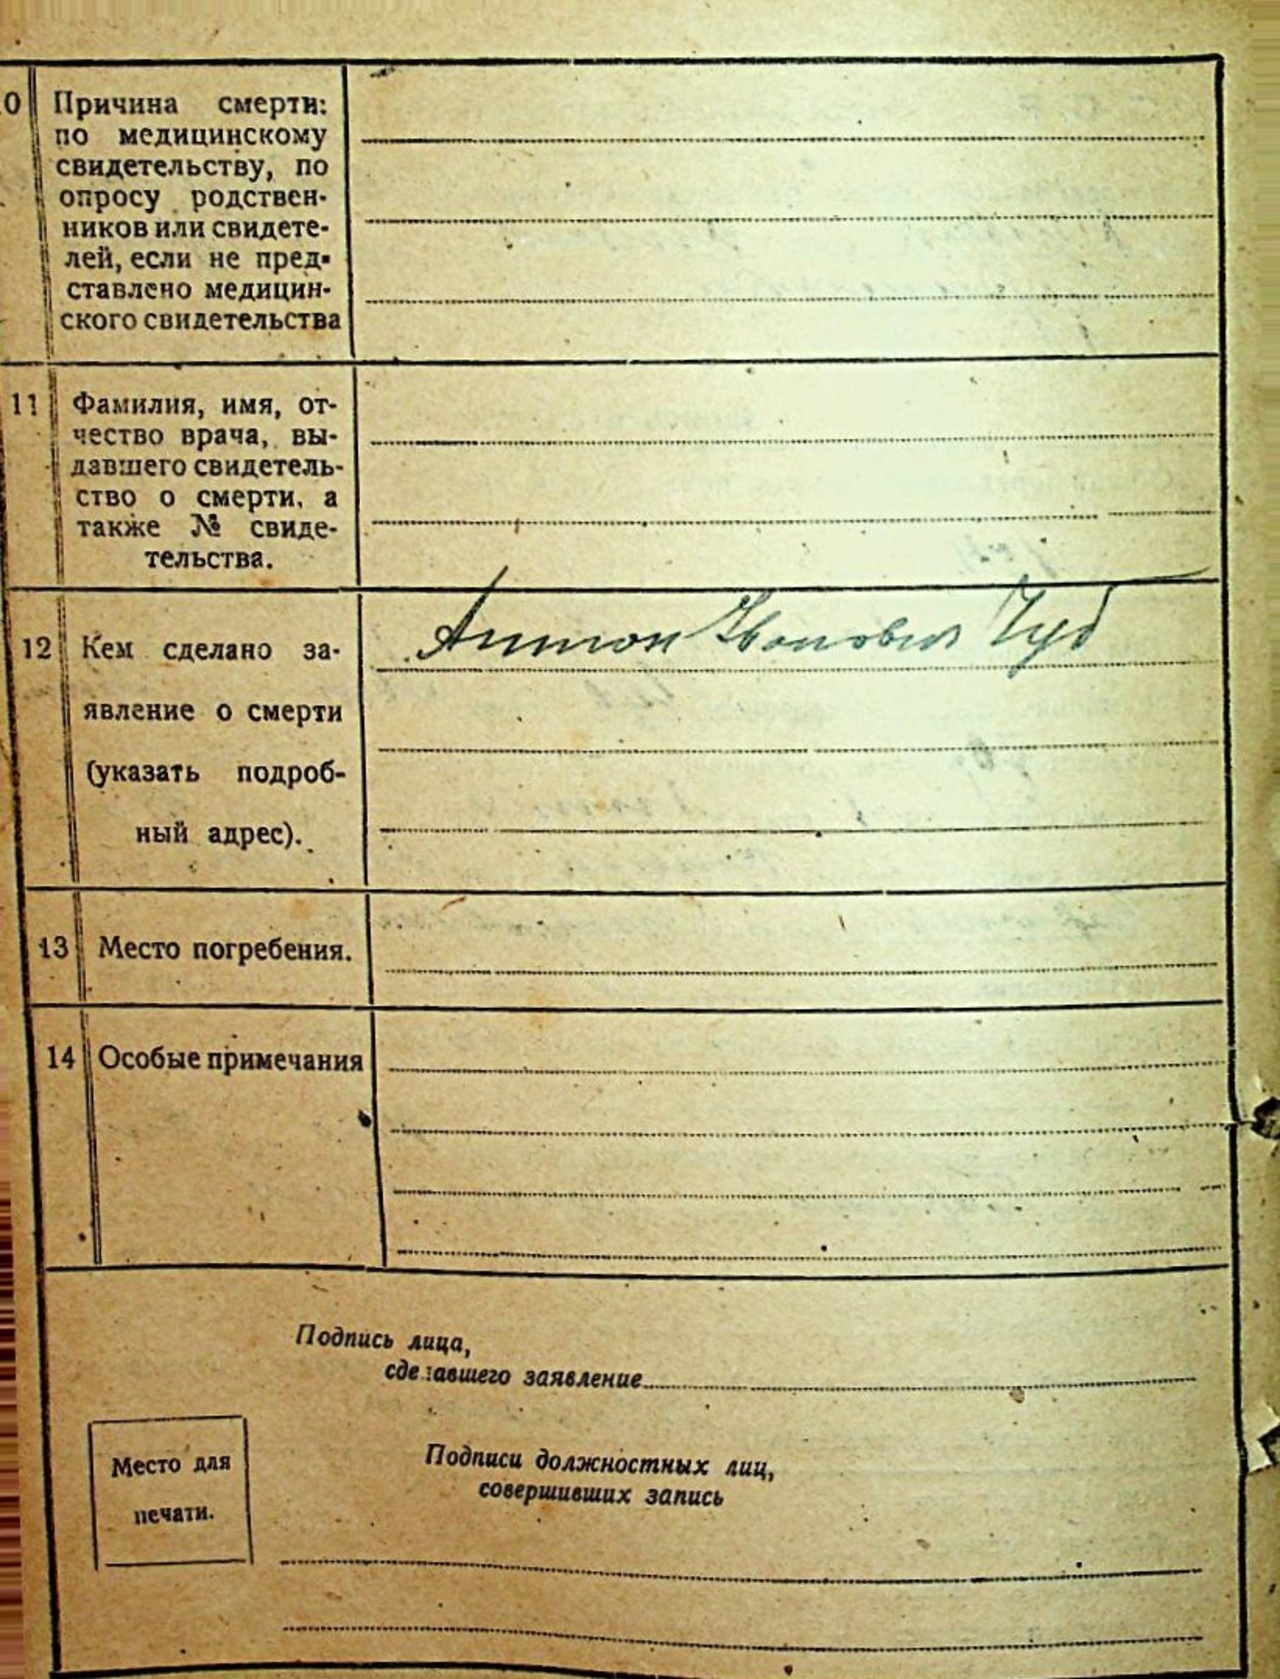 0 Причина смерти:
по медицинскому
свидетельству, по
опросу родствен-
ников или свидете-
лей, если не пред-
ставлено медицин-
ского свидетельства
11 Фамилия, имя, от-
чество врача, вы-
давшего свидетель-
ство о смерти, а
также № свиде-
тельства.
Антон Иванович Чуб
12 Кем сделано за-
явление о смерти
(указать подроб-
ный адрес).
13 Место погребения.
14 Особые примечания
Подпись лица,
сделавшего заявление
Подписи должностных лиц,
совершивших запись
Место для
печати.